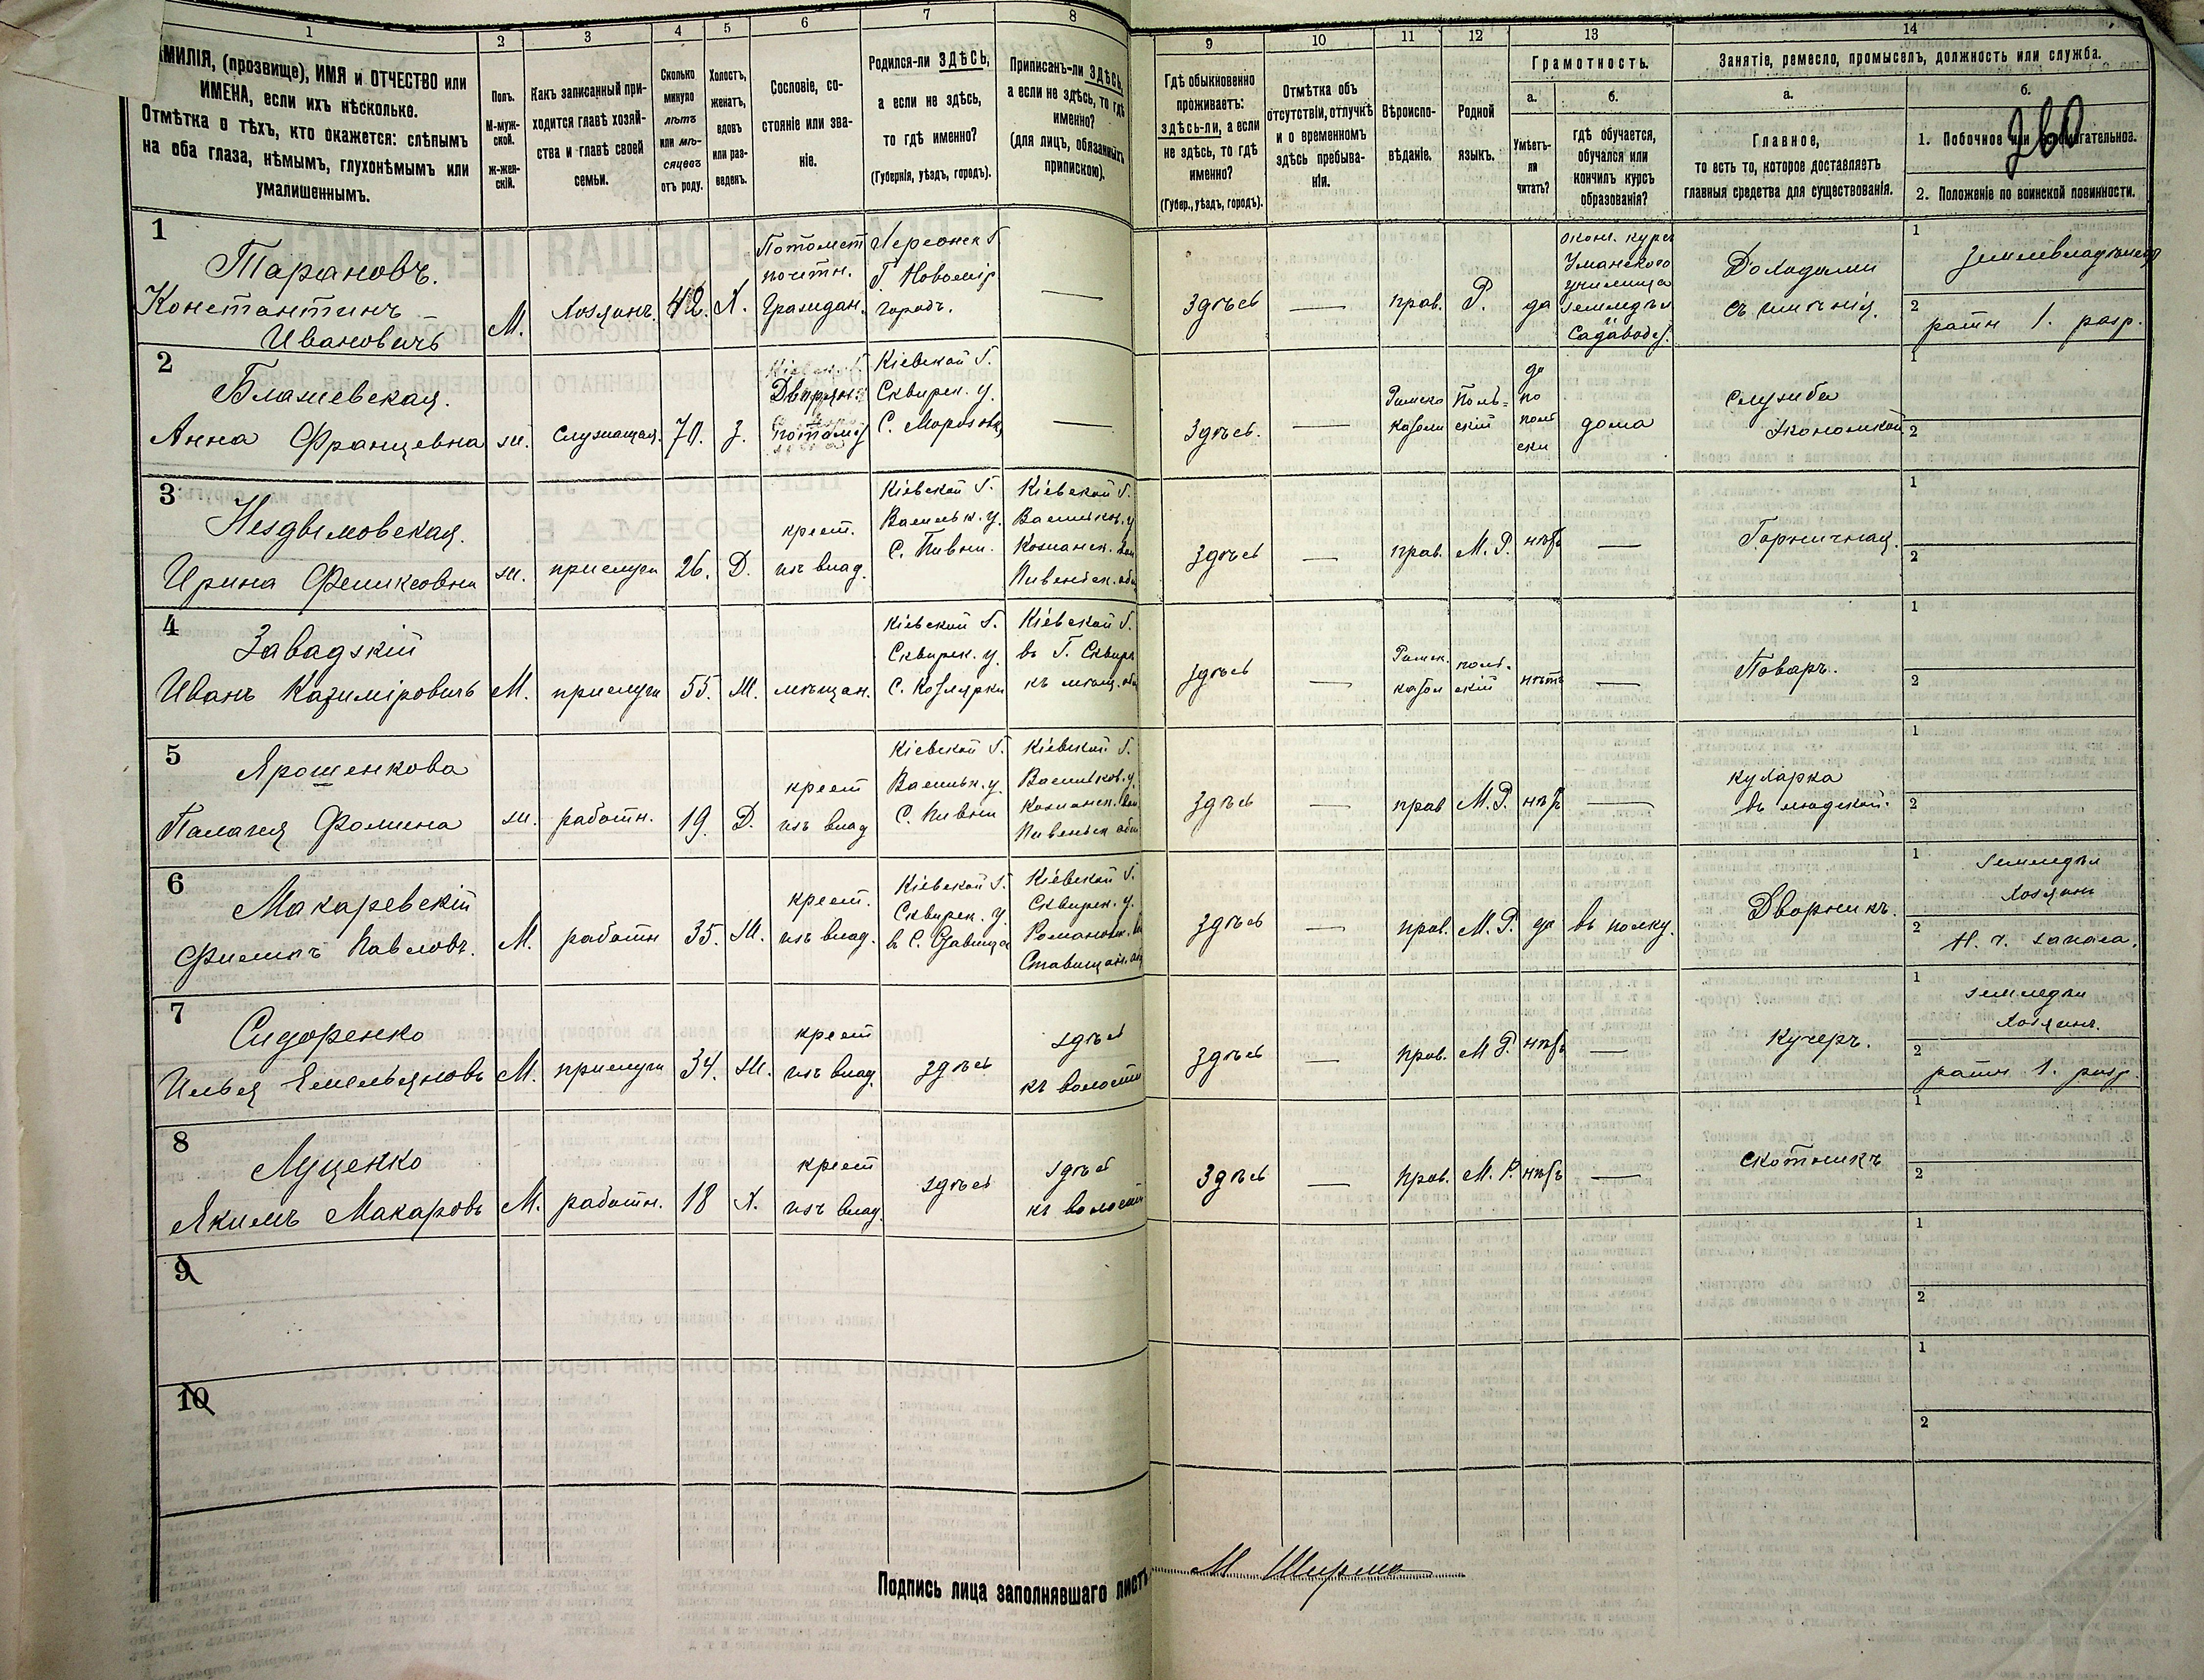 1 2 3 4 5 6 7 8 9 10 11 12 13 14
МИЛІЯ, (прозвище), ИМЯ и ОТЧЕСТВО или
ИМЕНА, если ихъ нѣсколько.
Отмѣтка о тѣхъ, кто окажется: слѣпымъ
на оба глаза, нѣмымъ, глухонѣмымъ или
умалишеннымъ.
Полъ.
М-муж-
ской.
ж-жен-
скій.
Какъ записанный при-
ходится главѣ хозяй-
ства и главѣ своей
семьи.
Сколько
минуло
лѣтъ
или мѣ-
сяцевъ
отъ роду.
Холостъ,
женатъ,
вдовъ
или раз-
веденъ.
Сословіе, со-
стояніе или зва-
ніе.
Родился-ли ЗДѢСЬ,
а если не здѣсь,
то гдѣ именно?
(Губернія, уѣздъ, городъ).
Приписанъ-ли ЗДѢСЬ,
а если не здѣсь, то гдѣ
именно?
(для лицъ, обязанныхъ
припискою).
Гдѣ обыкновенно
проживаетъ:
здѣсь-ли, а если
не здѣсь, то гдѣ
именно?
(Губер., уѣздъ, городъ).
Отмѣтка объ
отсутствіи, отлучкѣ
и о временномъ
здѣсь пребыва-
ніи.
Вѣроиспо-
вѣданіе.
Родной
языкъ.
Грамотность.
а.
Умѣетъ-
ли
читать?
б.
гдѣ обучается,
обучался или
кончилъ курсъ
образованія?
Занятіе, ремесло, промыселъ, должность или служба.
а.
Главное,
то есть то, которое доставляетъ
главныя средства для существованія.
б.
260
1. Побочное или вспомогательное.
2. Положеніе по воинской повинности.
1
Тарановъ.
Константинъ
Ивановичъ
М.
Хозяинъ.
42.
Х.
Потомст
почтн.
Граждан.
Херсонск Г.
Г. Новомір
городъ.
—
Здѣсь
—
прав.
Р.
да
оконч. курсъ
Уманскаго
училища
земледѣл
и
Садоводс.
Доходами
съ имѣнія.
1 землевладѣлецъ
2 ратн 1. разр.
2
Блажевская.
Анна Францевна
ж.
Служащая.
70.
З.
Дворян.
потомс
Кіевской Г.
Сквирск. у.
С. Морозовка
—
Здѣсь.
—
Римско
каѳоли
Поль=
скій
да
по
поль
ски
дома
служба
экономкой
1
2
3
Нездымовская.
Ирина Феликсовна
ж.
прислуги
26.
Д.
крест.
изъ влад.
Кіевской Г.
Васильк. у.
С. Пивни.
Кіевской Г.
Васильков. у
Кожанск. вол
Пивенск. общ
здѣсь
—
прав.
М. Р.
нѣтъ
—
Горничная.
1
2
4
Завадскій
Иванъ Казиміровичъ
М.
прислуги
55.
Ж.
мѣщан.
Кіевской Г.
Сквирск. у.
С. Котлярки
Кіевской Г.
въ Г. Сквирѣ
къ мѣщ. общ
здѣсь
—
Римск.
каѳол
поль-
скій
нѣтъ
—
Поваръ.
1
2
5
Ярошенкова
Палагея Фомина
ж.
работн.
19.
Д.
крест
изъ влад
Кіевской Г.
Васильк. у.
С. Пивни
Кіевской Г.
Васильков. у.
Кожанск. вол
Пивеньск общ
здѣсь
—
прав
М. Р.
нѣтъ
—
кухарка
въ людской.
1
2
6
Макаревскій
Филипъ Павловъ.
М.
работн
35.
Ж.
крест.
изъ влад.
Кіевской Г.
Сквирск. у.
в С. Ставища
Кіевской Г.
Сквирск. у.
Романовк. в
Ставищан. общ
здѣсь
—
прав.
М. Р.
да
въ полку.
Дворникъ.
1 земледѣл
Хозяинъ
2 Н. ч. запаса.
7
Сидоренко
Илья Емельяновъ
М.
прислуги
34.
Ж.
крест
изъ влад.
здѣсь
здѣсь
къ волости
здѣсь
—
прав.
М Р.
нѣтъ
—
Кучеръ.
1 земледѣл
Хозяинъ.
2 ратн 1. разр.
8
Луценко
Якимъ Макаровъ
М.
работн.
18
Х.
крест
изъ влад.
здѣсь
здѣсь
къ волости
Здѣсь
—
прав.
М. Р.
нѣтъ
—
скотникъ
1
2
9
1
2
10
1
2
Подпись лица заполнявшаго листъ
М